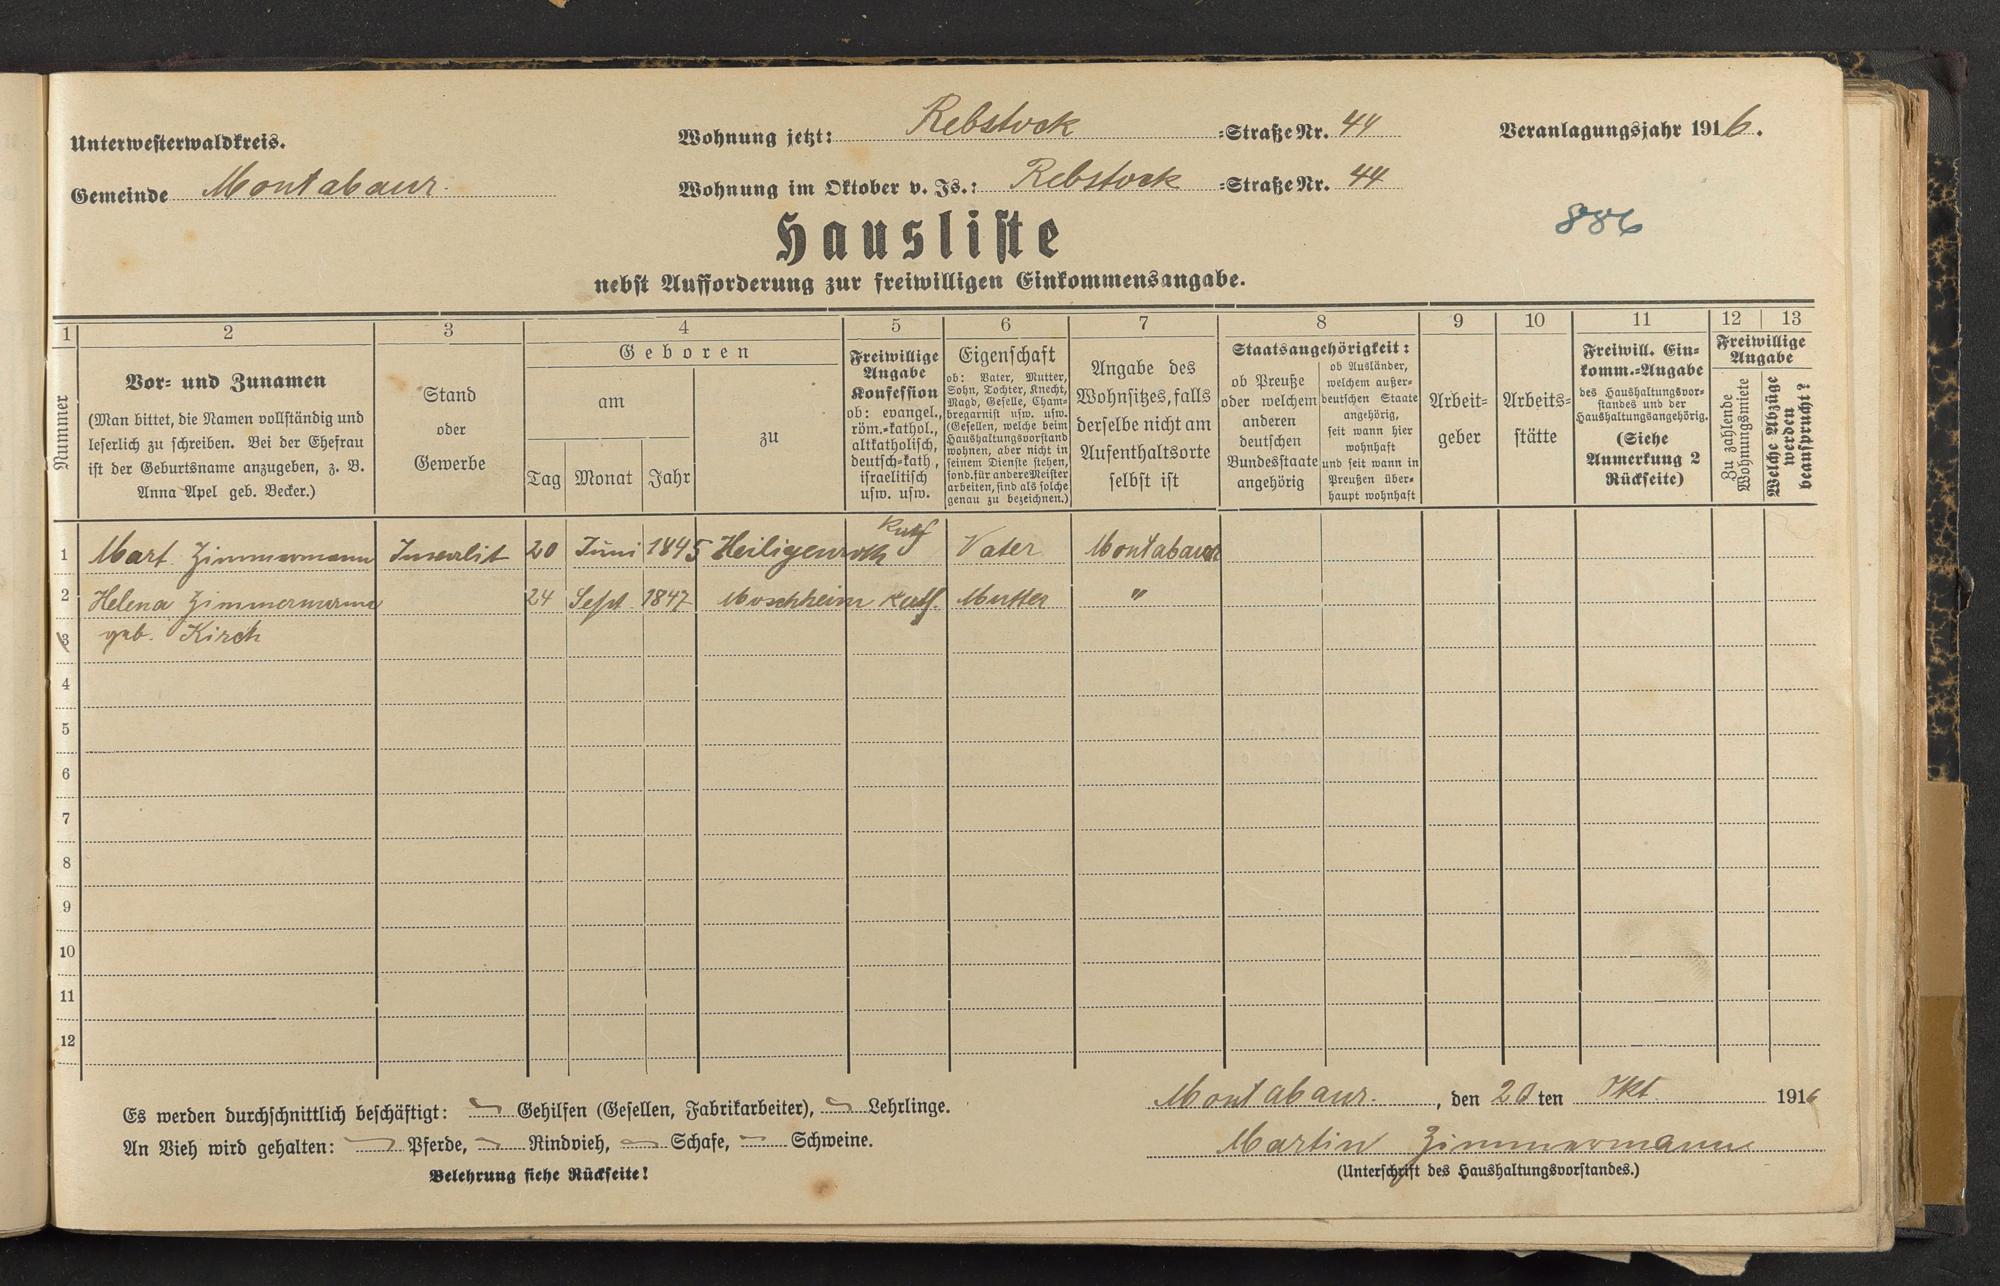 Unterwesterwaldkreis.
Gemeinde Montabaur.
Wohnung jetzt: Rebstock =Straße Nr. 44
Wohnung im Oktober v. Js.: Rebstock =Straße Nr. 44
Veranlagungsjahr 1916.
886
Hausliste
nebst Aufforderung zur freiwilligen Einkommensangabe.
1 2 3 4 5 6 7 8 9 10 11 12 13
Nummer
Vor= und Zunamen
(Man bittet, die Namen vollständig und
leserlich zu schreiben. Bei der Ehefrau
ist der Geburtsname anzugeben, z. B.
Anna Apel geb. Becker.)
Stand
oder
Gewerbe
Geboren
am
Tag Monat Jahr
zu
Freiwillige
Angabe
Konfession
ob: evangel.,
röm.=kathol.,
altkatholisch,
deutsch=kath,
israelitisch
usw. usw.
Eigenschaft
ob: Vater, Mutter,
Sohn, Tochter, Knecht,
Magd, Geselle, Cham=
bregarnist usw. usw.
(Gesellen, welche beim
Haushaltungsvorstand
wohnen, aber nicht in
seinem Dienste stehen,
sond. für andere Meister
arbeiten, sind als solche
genau zu bezeichnen.)
Angabe des
Wohnsitzes, falls
derselbe nicht am
Aufenthaltsorte
selbst ist
Staatsangehörigkeit:
ob Preuße
oder welchem
anderen
deutschen
Bundesstaate
angehörig
ob Ausländer,
welchem außer=
deutschen Staate
angehörig,
seit wann hier
wohnhaft
und seit wann in
Preußen über=
haupt wohnhaft
Arbeit=
geber
Arbeits=
stätte
Freiwill. Ein=
komm.=Angabe
des Haushaltungsvor=
standes und der
Haushaltungsangehörig.
(Siehe
Anmerkung 2
Rückseite)
Freiwillige
Angabe
Zu zahlende
Wohnungsmiete
Welche Abzüge
werden
beansprucht?
1 Mart. Zimmermann 20 Juni 1845 Heiligenroth Kath Vater Montabaur
2 Helena Zimmermann 24 Sept 1847 Moschheim Kath. Mutter "
3 geb. Kirch
4
5
6
7
8
9
10
11
12
Es werden durchschnittlich beschäftigt: Gehilfen (Gesellen, Fabrikarbeiter), Lehrlinge.
An Vieh wird gehalten: Pferde, Rindvieh, Schafe, Schweine.
Belehrung siehe Rückseite!
Montabaur., den 20ten Okt. 1916
Martin Zimmermann
(Unterschrift des Haushaltungsvorstandes.)